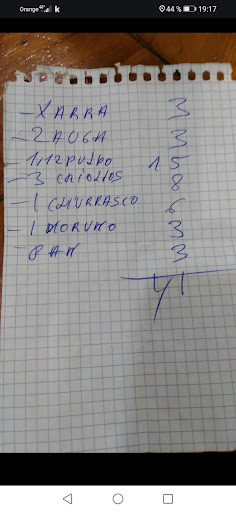 Orange 4G k 44 % 19:17
- XARRA 3
- 2 AUGA 3
- 1,12 PULPO 15
- 3 CRIOLLOS 8
- 1 CHURRASCO 6
- 1 MORUNO 3
- PAN 3
41